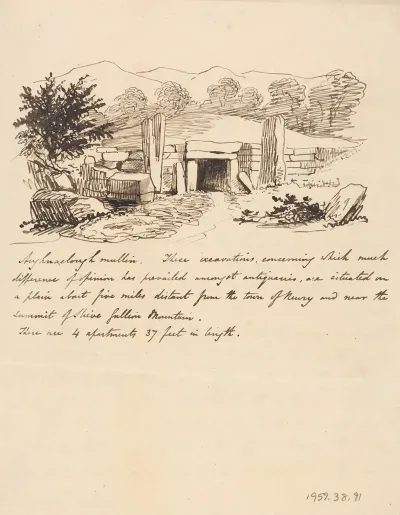 Aughnaclough mullin. These excavations, concerning which much
difference of opinion has prevailed amongst antiquaries, are situated on
a plain about five miles distant from the town of Newry and near the
summit of Slieve Gullion Mountain.
There are 4 apartments 37 feet in length.
1959.38,91